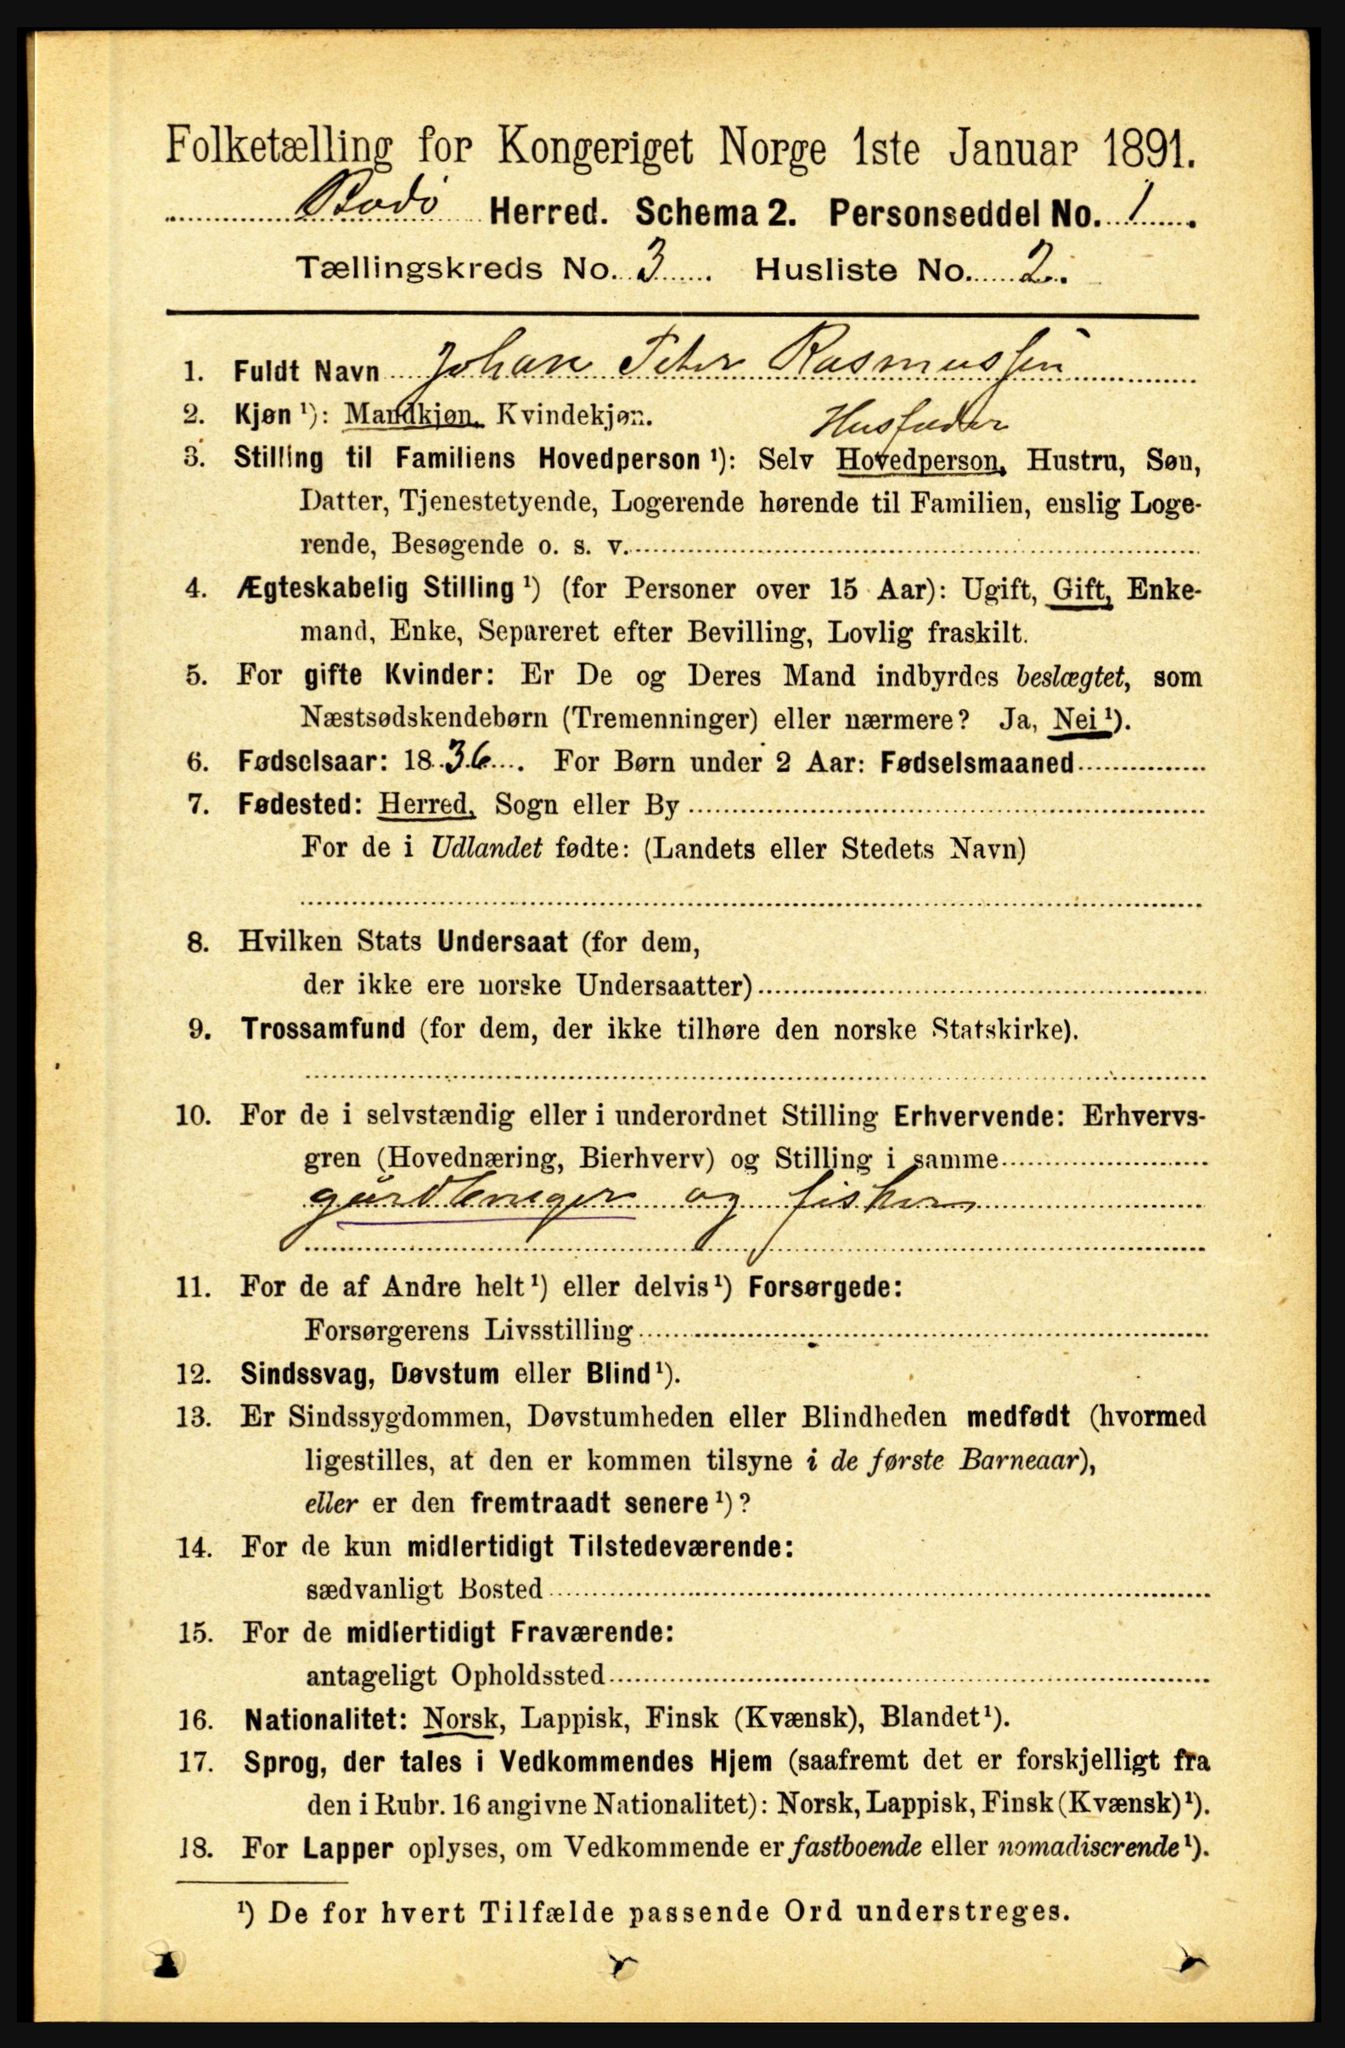 Folketælling for Kongeriget Norge 1ste Januar 1891.
Bodö Herred. Schema 2. Personseddel No. 1.
Tællingskreds No. 3. Husliste No. 2.
1. Fuldt Navn Johan Peter Rasmussen
2. Kjøn ¹): Mandkjøn, Kvindekjøn.
Husfader
3. Stilling til Familiens Hovedperson ¹): Selv Hovedperson, Hustru, Søn,
Datter, Tjenestetyende, Logerende hørende til Familien, enslig Loge-
rende, Besøgende o. s. v.
4. Ægteskabelig Stilling ¹) (for Personer over 15 Aar): Ugift, Gift, Enke-
mand, Enke, Separeret efter Bevilling, Lovlig fraskilt.
5. For gifte Kvinder: Er De og Deres Mand indbyrdes beslægtet, som
Næstsødskendebørn (Tremenninger) eller nærmere? Ja, Nei ¹).
6. Fødselsaar: 1836. For Børn under 2 Aar: Fødselsmaaned
7. Fødested: Herred, Sogn eller By
For de i Udlandet fødte: (Landets eller Stedets Navn)
8. Hvilken Stats Undersaat (for dem,
der ikke ere norske Undersaatter)
9. Trossamfund (for dem, der ikke tilhøre den norske Statskirke).
10. For de i selvstændig eller i underordnet Stilling Erhvervende: Erhvervs-
gren (Hovednæring, Bierhverv) og Stilling i samme
gårdbruger og fisker
11. For de af Andre helt ¹) eller delvis ¹) Forsørgede:
Forsørgerens Livsstilling
12. Sindssvag, Døvstum eller Blind ¹).
13. Er Sindssygdommen, Døvstumheden eller Blindheden medfødt (hvormed
ligestilles, at den er kommen tilsyne i de første Barneaar),
eller er den fremtraadt senere ¹)?
14. For de kun midlertidigt Tilstedeværende:
sædvanligt Bosted
15. For de midlertidigt Fraværende:
antageligt Opholdssted
16. Nationalitet: Norsk, Lappisk, Finsk (Kvænsk), Blandet ¹).
17. Sprog, der tales i Vedkommendes Hjem (saafremt det er forskjelligt fra
den i Rubr. 16 angivne Nationalitet): Norsk, Lappisk, Finsk (Kvænsk) ¹).
18. For Lapper oplyses, om Vedkommende er fastboende eller nomadiserende ¹).
¹) De for hvert Tilfælde passende Ord understreges.